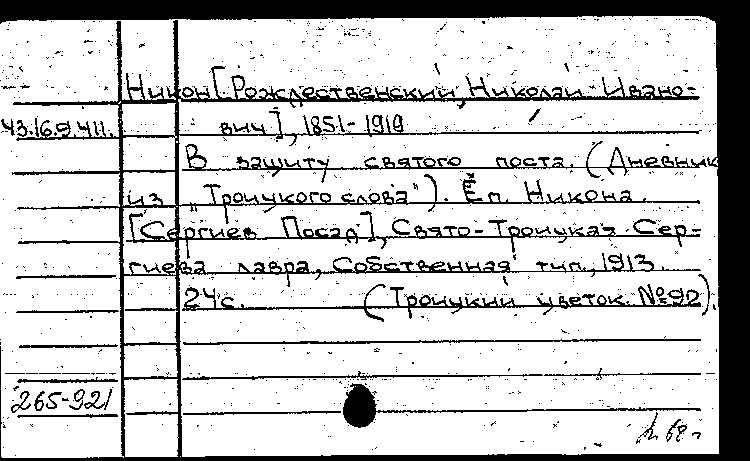 Никон [Рождественский, Николай Ивано-
43.16.9.411. вич], 1851-1919
В защиту святого поста. (Дневник
из „Троицкого слова"). Еп. Никона.
[Сергиев Посад], Свято-Троицкая Сер-
гиева лавра, Собственная тип., 1913.
24с. (Троицкий цветок №92).
265-921
68г